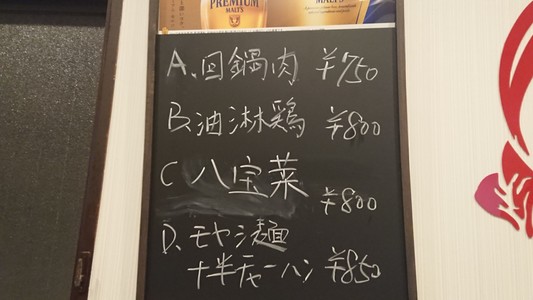 PREMIUM
MALT'S
MALT'S
A.回鍋肉 ¥750
B.油淋鶏 ¥800
C 八宝菜 ¥800
D.モヤシ麺
+半チャーハン ¥850